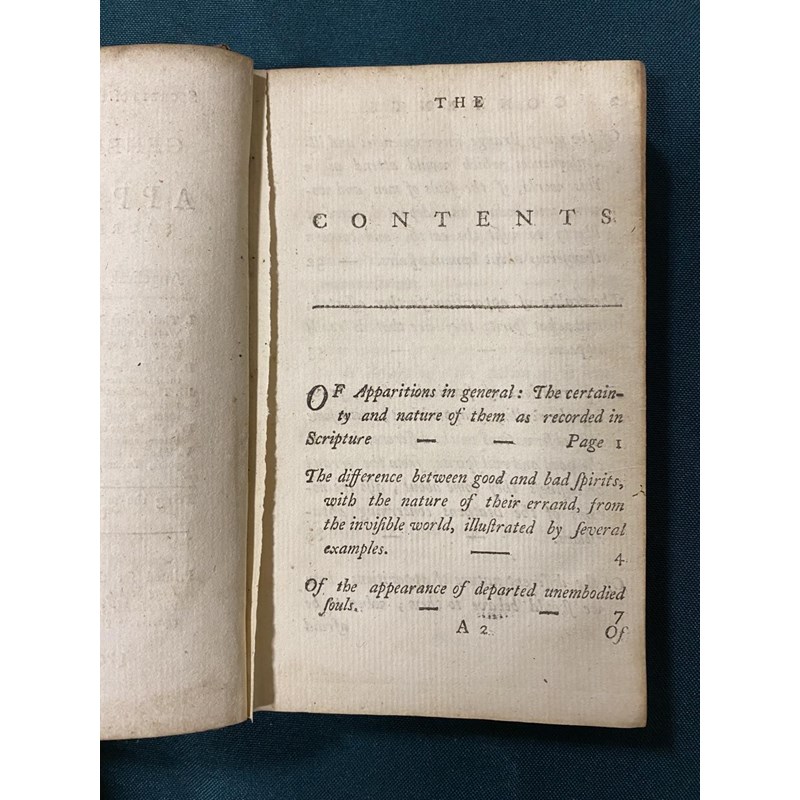 THE
CONTENTS
OF Apparitions in general: The certain-
ty and nature of them as recorded in
Scripture — — Page 1
The difference between good and bad ſpirits,
with the nature of their errand, from
the inviſible world, illuſtrated by ſeveral
examples. — 4
Of the appearance of departed unembodied
ſouls. — — 7
A 2 Of